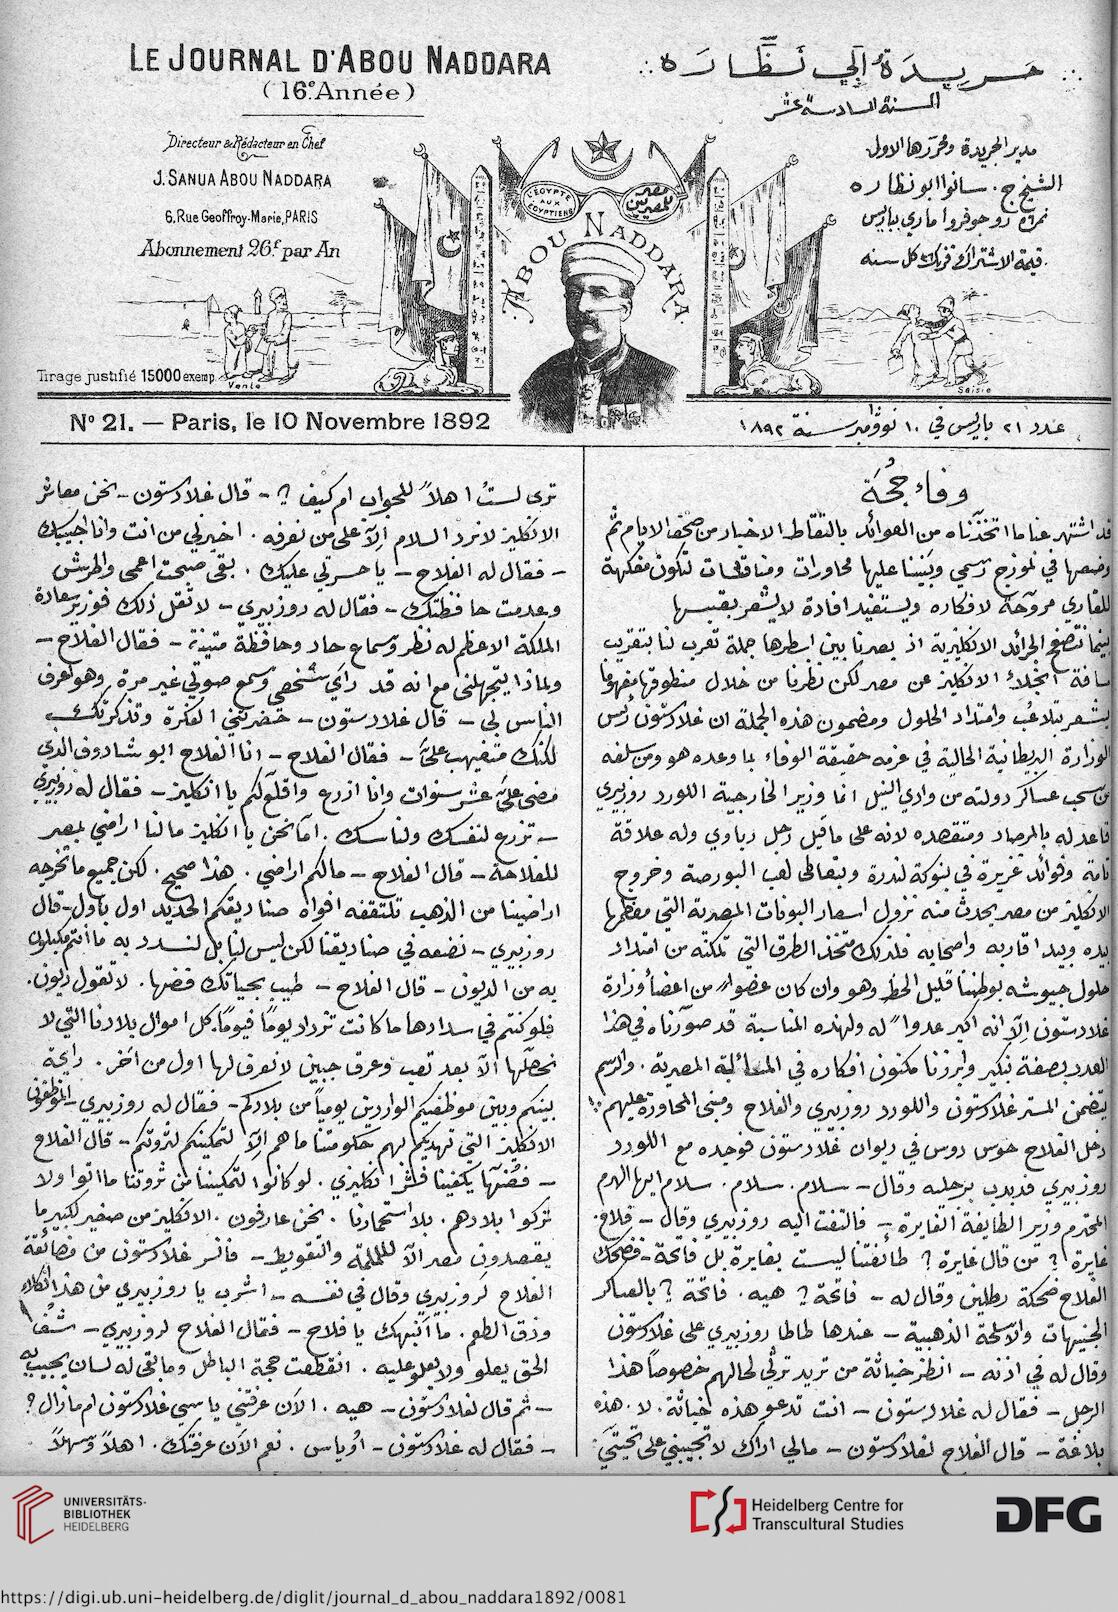 LE JOURNAL D'ABOU NADDARA
(16e Année)
Directeur & Rédacteur en Chef
J. SANUA ABOU NADDARA
6, Rue Geoffroy-Marie, PARIS
Abonnement 26f par An
جريدة ابي نظاره
السنة السادسة عشر
مدير الجريدة ومحررها الاول
الشيخ ج. سانوا ابو نظاره
نمرة ٦ رو جوفروا ماري بباريس
قيمة الاشتراك ٢٦ فرنك كل سنه
L'ÉGYPTE AUX ÉGYPTIENS
مصر للمصريين
ABOU NADDARA
Tirage justifié 15000 exemp.
Vente
Saisie
No 21. — Paris, le 10 Novembre 1892
عدد ٢١ باريس في ١٠ نوڤمبر سنة ١٨٩٢
قد اشتهر عنا ما اتخذناه من العوائد بالتقاط الاخبار من صحف الايام ثم
وضعها في نموزج رسمي وبنينا عليها محاورات ومناقشات لتكون مفكهة
للقاري مروحة لافكاره ويستفيد افادة لا يشعر بقبسها
بينما نتصفح الجرائد الانكليزية اذ بصرنا بين اسطرها جملة تعرب لنا بتقريب
مسافة انجلاء الانكليز عن مصر لكن نظرنا من خلال منطوقها مفهوما
يشعر بتلاعب وامتداد الحلول ومضمون هذه الجملة ان غلادستون رئيس
الوزارة البريطانية الحالية في عزمه حقيقة الوفاء بما وعده هو ومن سلفه
من سحب عساكر دولته من وادي النيل انما وزير الخارجية اللورد روزبيري
قاعد له بالمرصاد ومتقصده لانه على ما قيل رجل رباوي وله علاقة
تامة وفوائد غزيرة في بنوكة لندرة ويتعاطى لعب البورصة وخروج
الانكليز من مصر يحدث منه نزول اسعار البونات المصرية التي معظمها
بيده وبيد اقاربه واصحابه فلذلك متخذ الطرق التي تمكنه من امتداد
حلول جيوشه بوطننا قليل الحظ وهو وان كان عضوا من اعضاء وزارة
غلادستون الا انه اكبر عدوا له ولهذه المناسبة قد صورناه في هذا
العدد بصفة نكير وابرزنا مكنون افكاره في المسائلة المصرية. والرسم
يتضمن المستر غلادستون واللورد روزبيري والفلاح ومبنى المحاورة عليهم
دخل الفلاح حوس دوس في ديوان غلادستون فوجده مع اللورد
روزبيري فدبدب برجليه وقال – سلام. سلام. سلام ايها الهرم
المحترم وزير الطايفة الغايرة – فالتفت اليه روزبيري وقال – فلاح.
غايرة؟ من قال غايرة؟ طائفتنا ليست بغايرة بل فاتحة – فضحك
الفلاح ضحكة رطلين وقال له – فاتحة؟ هيه. فاتحة؟ بالعساكر
الجنيهات والاسلحة الذهبية – عندها طاطا روزبيري على غلادستون
وقال له في اذنه – انظر خباثة من تريد ترثي لحالهم خصوصا هذا
الرجل – فقال له غلادستون – انت تدعو هذه خباثة. لا. هذه
بلاغة – قال الفلاح لغلادستون – مالي اراك لا تجيبني على تحيتي.
ترى لست اهلا للجواب ام كيف؟ – قال غلادستون – نحن معاشر
الانكليز لا نرد السلام الا على من نعرفه. اخبرني من انت وانا اجيبك
– فقال له الفلاح – يا حسرتي عليك. بقى صبحت اعمى واطرش
وعدمت حافظتك – فقال له روزبيري – لا تقل ذلك فوزير سعادة
الملكة الاعظم له نظر وسماع حاد وحافظة متينة – فقال الفلاح –
ولماذا يتجهلني مع انه قد راي شخصي وسمع صوتي غير مرة وهو اعرف
الناس بي – قال غلادستون – حضرتني الفكرة وتذكرتك
لكنك متغيب علي – فقال الفلاح – انا الفلاح ابو شادوف الذي
مضى علي عشر سنوات وانا ازرع واقلع لكم يا انكليز – فقال له روزبيري
– تزرع لنفسك ولناسك. اما نحن يا انكليز ما لنا اراضي بمصر
للفلاحة – قال الفلاح – مالكم اراضي. هذا صحيح. لكن جميع ما تخرجه
اراضينا من الذهب تلتقفه افواه صناديقكم الحديد اول باول – قال
روزبيري – نضعه في صناديقنا لكن ليس لنا بل لنسدد به ما انتم مكبلون
به من الديون – قال الفلاح – طيب بحياتك فضها. لا تقول ديون.
فلو كنتم في سدادها ما كانت تزداد يوما فيوما. كل اموال بلادنا التي لا
نحصلها الا بعد تعب وعرق جبين لا نعرف لها اول من اخر. رايحة
بينكم وبين موظفيكم الواردين يوميا من بلادكم – فقال له روزبيري – الموظفون
الانكليز التي تهديكم لهم حكومتنا ما هم الا لتمكينكم لثروتكم – قال الفلاح
– فضها يكفينا فشر انكليزي. لو كانوا لتمكيننا من ثروتنا ما اتوا ولا
تركوا بلادهم. بلا استحمارنا. نحن عارفون. الانكليز من صغير لكبير ما
يقصدون مصر الا للململة والتقويط – فانسر غلادستون من فصاحة
الفلاح لروزبيري وقال في نفسه – اشرب يا روزبيري من هذا الكلاء
وذق الطعم. ما انبهك يا فلاح – فقال الفلاح لروزبيري – شف
الحق يعلو ولا يعلو عليه. انقطعت حجة الباطل وما بقى له لسان يجيب به
– ثم قال لغلادستون – هيه. الان عرفتني يا سي غلادستون ام مازال؟
– فقال له غلادستون – اوياس. نعم الان عرفتك. اهلا وسهلا
UNIVERSITÄTS-
BIBLIOTHEK
HEIDELBERG
Heidelberg Centre for
Transcultural Studies
DFG
https://digi.ub.uni-heidelberg.de/diglit/journal_d_abou_naddara1892/0081